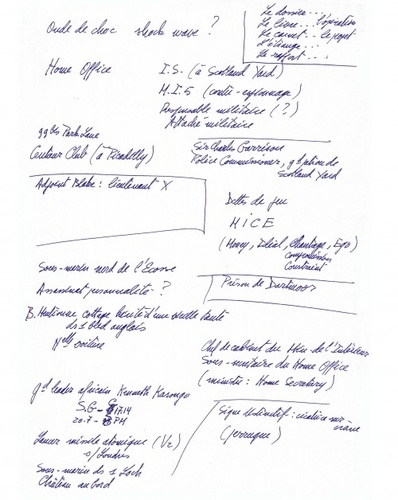 Onde de choc shock wave ?
Le dossier . . .
Le livre . . . l'opération
Le carnet . . . le projet
L'étrange . . .
Le rapport . . .
Home Office
I.S. (à Scotland Yard)
M.I.5 (contre-espionnage)
Responsable militaire (?)
Attaché militaire
99 bis Park Lane
Centaur Club (à Picadilly)
Sir Charles Garrison
Police Commissioner, gd patron de
Scotland Yard
Adjoint Blake : lieutenant X
Dettes de jeu
MICE
(Money, Idéal, Chantage, Ego)
compromission
Constraint
Sous-marin nord de l'Ecosse
Assassinat personnalité ?
Prison de Dartmoor
B. Mortimer, cottage hérité d'une vieille tante
ds 1 bled anglais
Nlle voiture
Chef de cabinet du Min de l'Intérieur
Sous-secrétaire du Home Office
(ministre : Home Secretary)
gd leader africain Kenneth Kasongo
S.G - 1714
20.7 - PH
Signe distinctif : cicatrice sur
crâne
(perruque)
Lancer missile atomique (V2)
s/Londres
Sous-marin ds 1 Loch
Château au bord